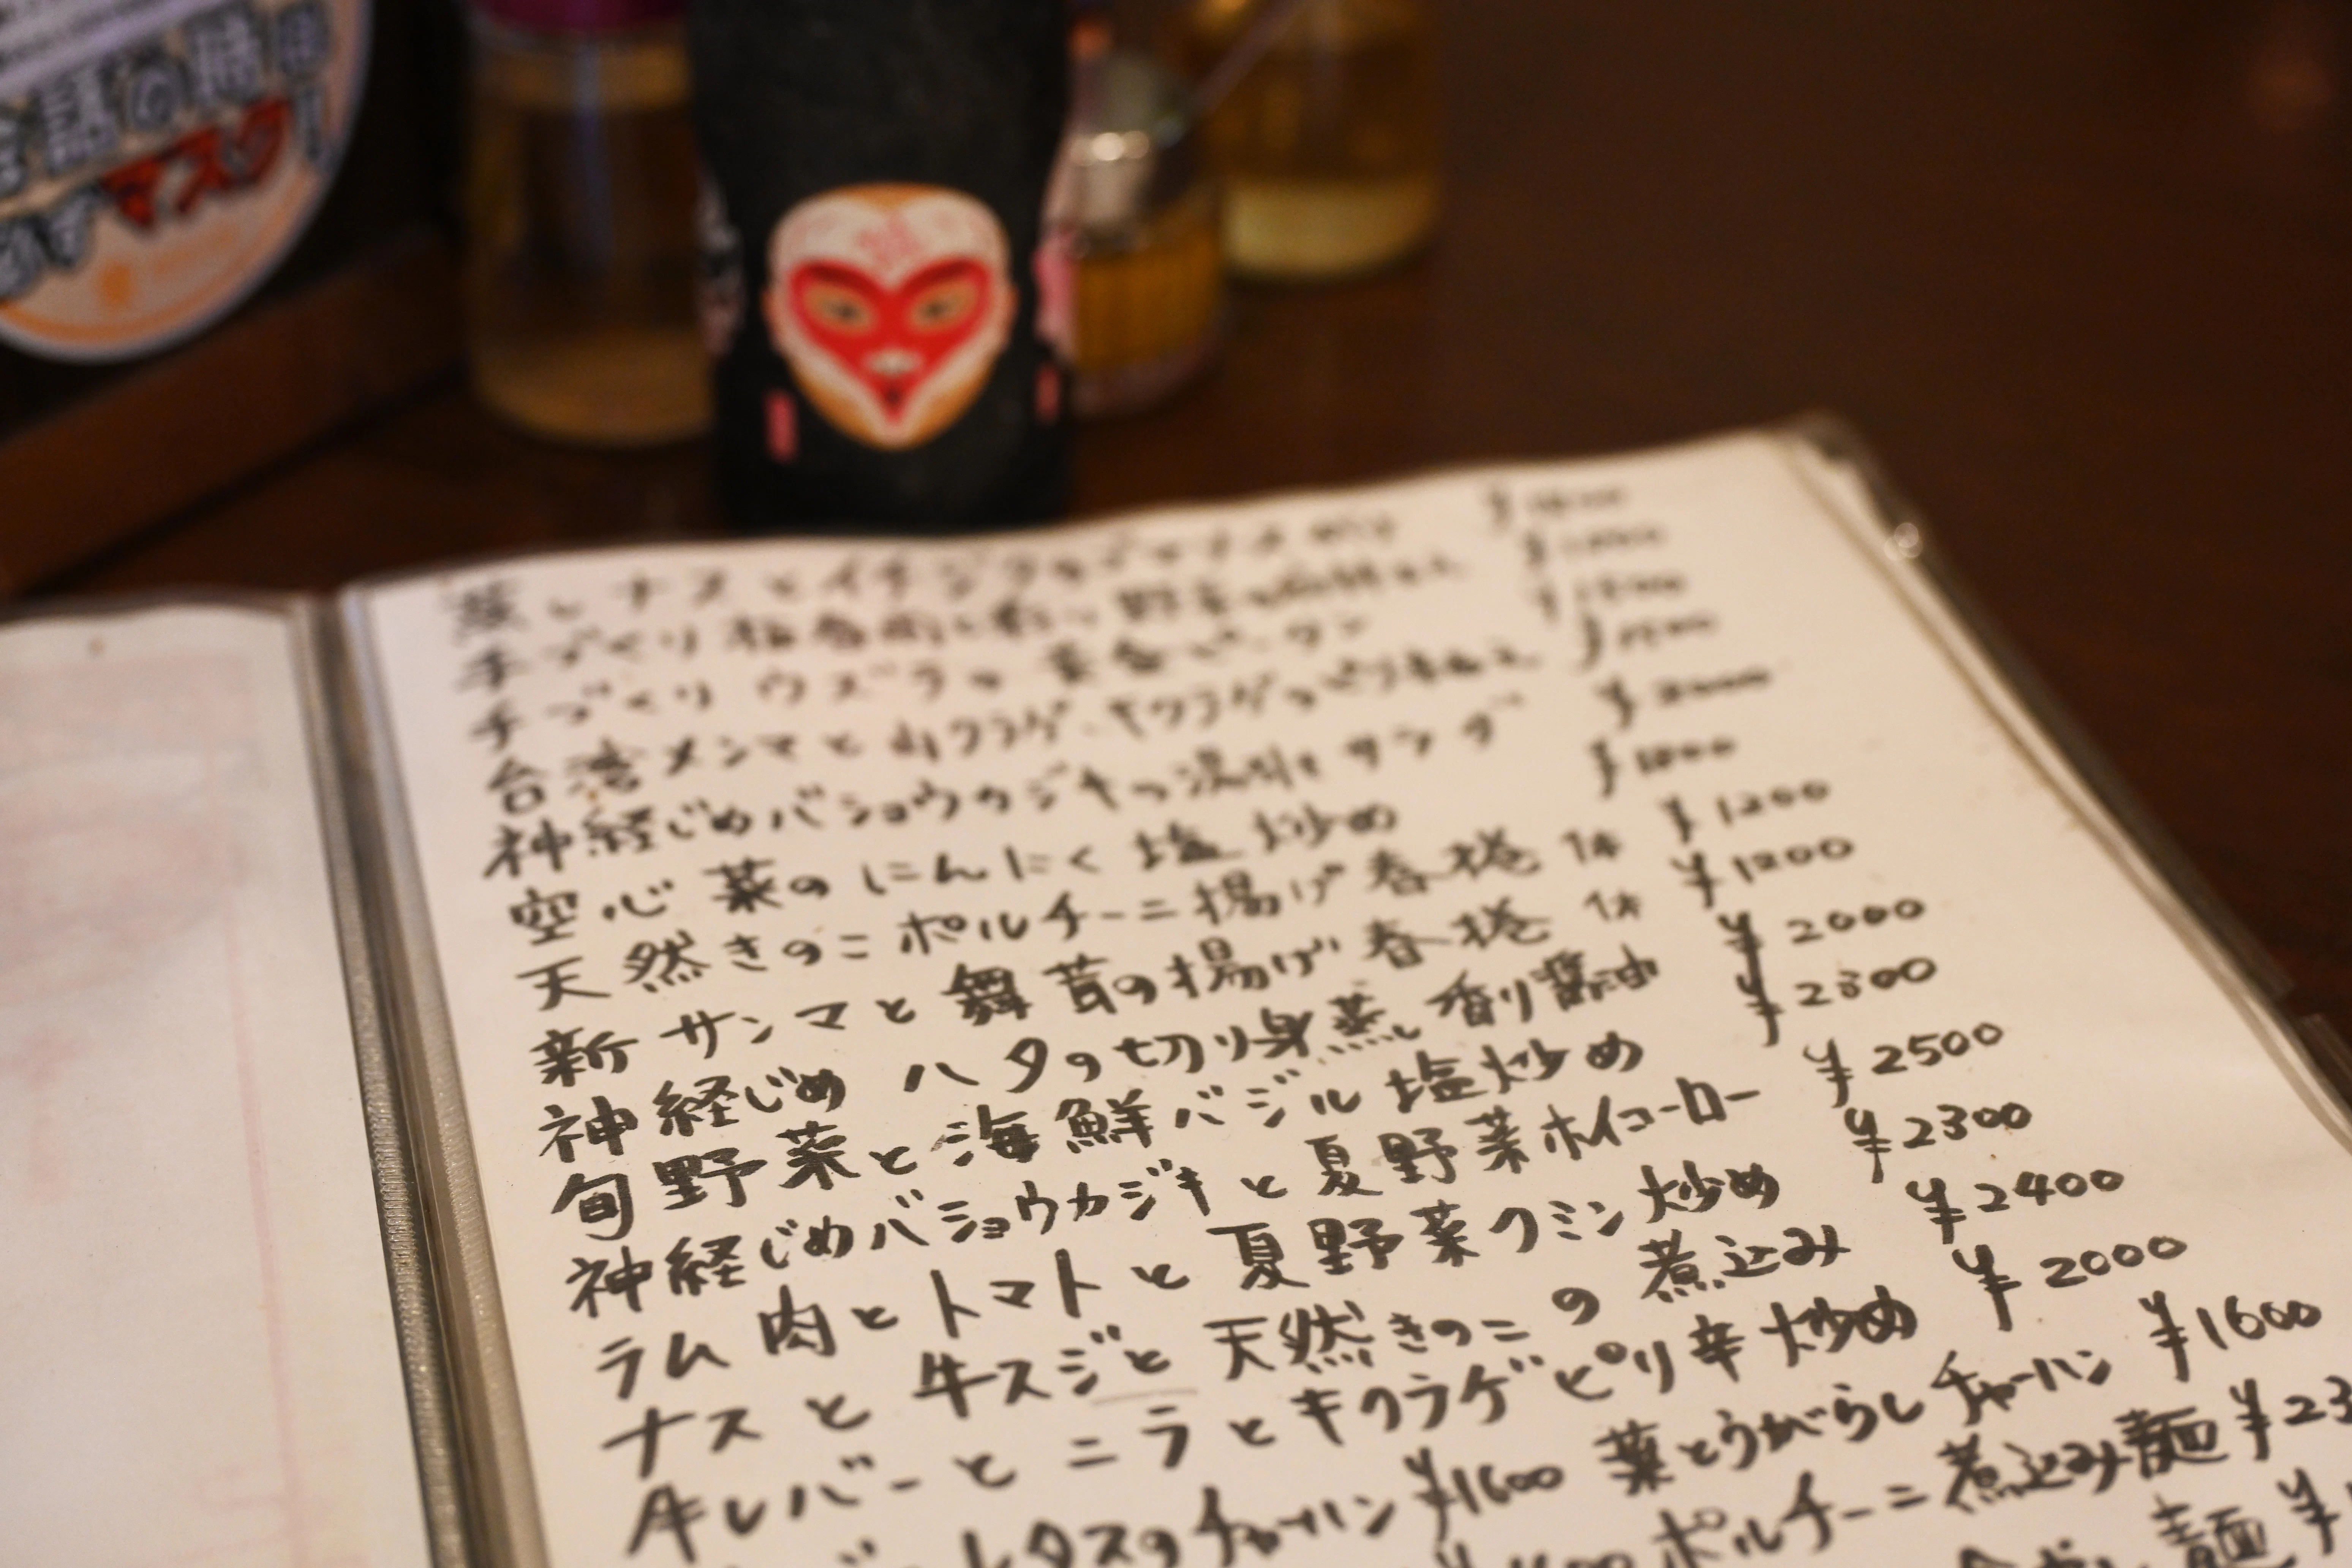 会話の時は
必ずマスク!
蒸しナスとイチジクの
手づくり
手づくりウズラの黄金ピータン
台湾メンマと山クラゲ、キクラゲの
神経じめバショウカジキの湯引きサラダ ¥2000
空心菜のにんにく塩炒め ¥1800
天然きのこポルチーニ揚げ春捲 1本 ¥1200
新サンマと舞茸の揚げ春捲 1本 ¥1200
神経じめ ハタの切り身蒸し 香り醤油 ¥2000
旬野菜と海鮮バジル塩炒め ¥2300
神経じめバショウカジキと夏野菜ホイコーロー ¥2500
ラム肉とトマトと夏野菜クミン炒め ¥2300
ナスと牛スジと天然きのこの煮込み ¥2400
牛レバーとニラとキクラゲピリ辛炒め ¥2000
レタスのチャーハン ¥1600 葉とうがらしチャーハン ¥1600
ポルチーニ煮込み麺 ¥23
麺 ¥